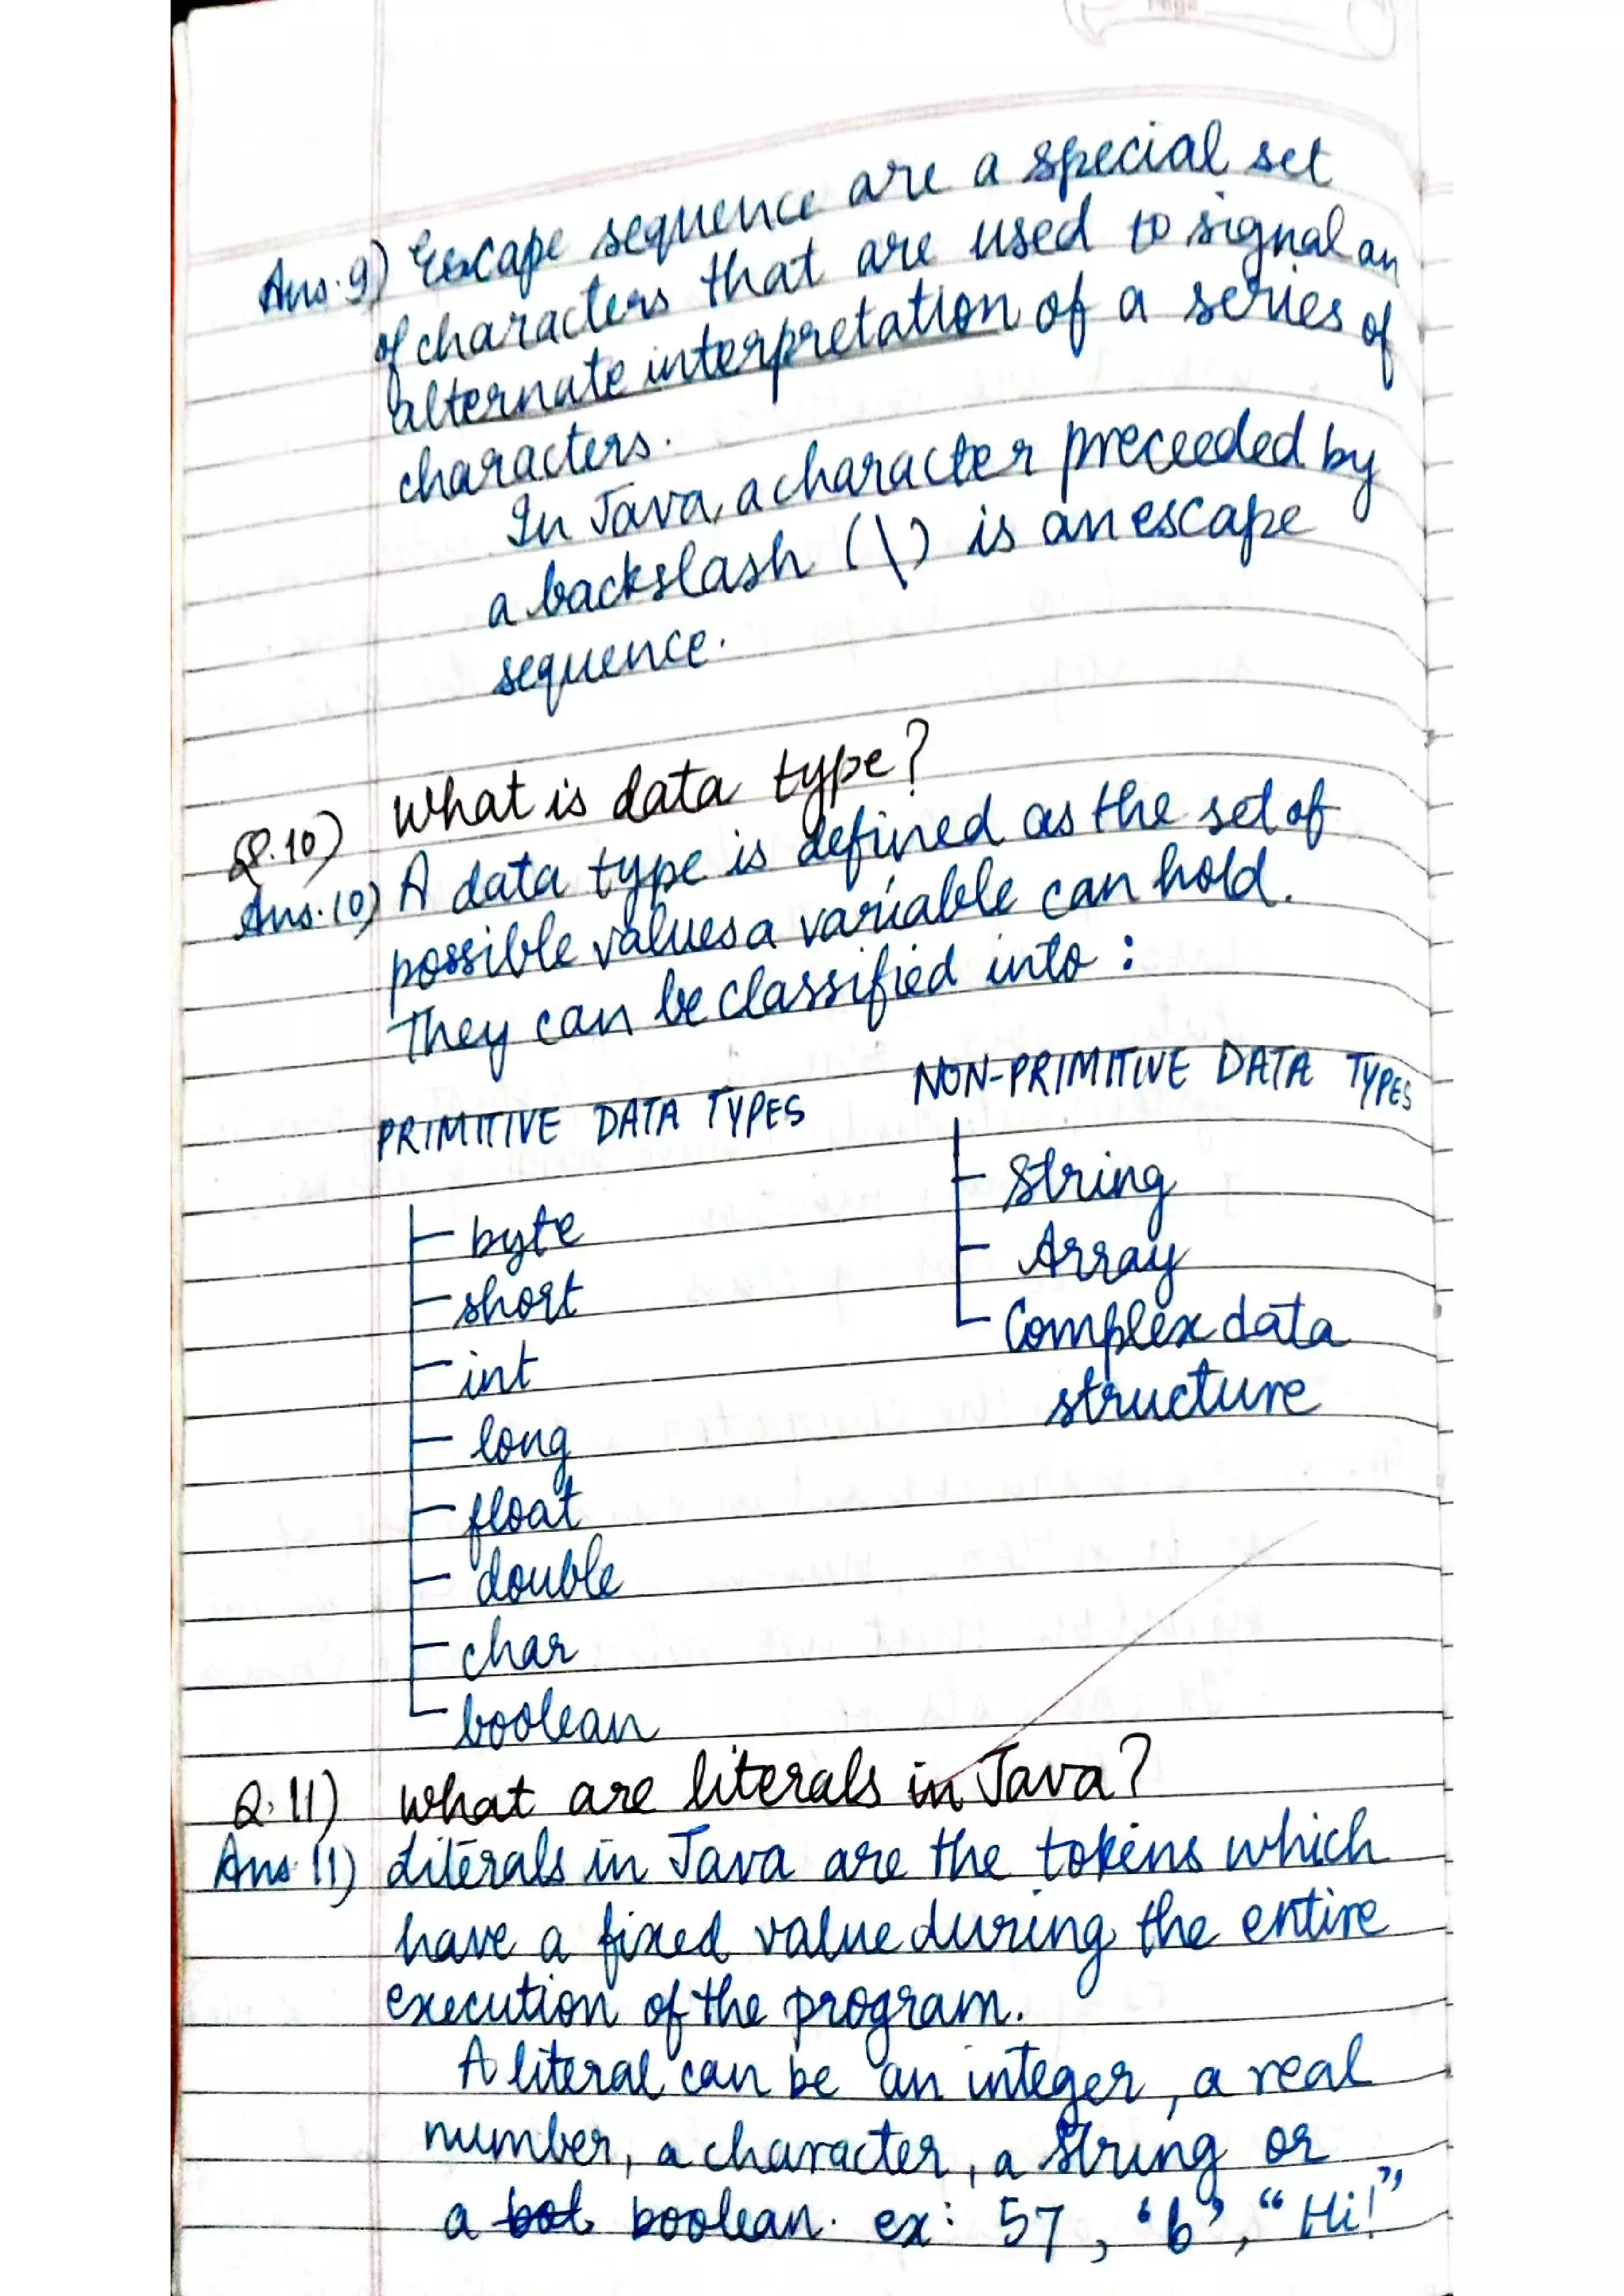 Ans.9) Escape sequence are a special set
of characters that are used to signal an
alternate interpretation of a series of
characters.
In Java, a character preceeded by
a backslash (\) is an escape
sequence.
Q.10) What is data type?
Ans.10) A data type is defined as the set of
possible values a variable can hold.
They can be classified into :
PRIMITIVE DATA TYPES
byte
short
int
long
float
double
char
boolean
NON-PRIMITIVE DATA TYPES
String
Array
Complex data
structure
Q.11) What are literals in Java?
Ans 11) Literals in Java are the tokens which
have a fixed value during the entire
execution of the program.
A literal can be an integer, a real
number, a character, a string or
a boolean. ex: 57, 'b', "Hi!"